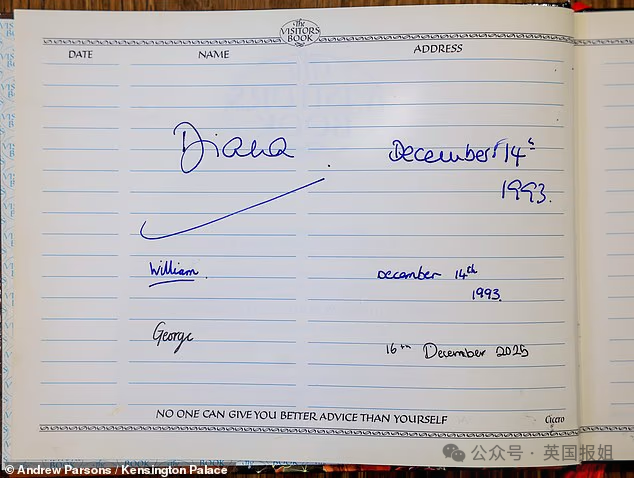 The
VISITORS
BOOK
DATE NAME ADDRESS
Diana December 14th
1993.
William. December 14th
1993.
George 16th December 2025
NO ONE CAN GIVE YOU BETTER ADVICE THAN YOURSELF Cicero
© Andrew Parsons / Kensington Palace
公众号 · 英国报姐